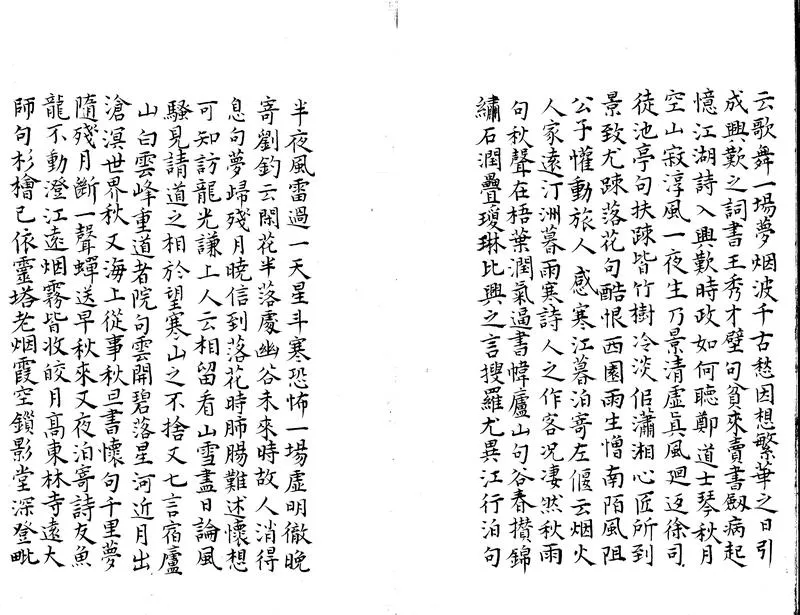 云歌舞一場夢烟波千古愁因想繁華之日引
成興歎之詞書王秀才壁句貧來賣書劔病起
憶江湖詩入興歎時政如何聽鄭道士琴秋月
空山寂淳風一夜生乃景清虛眞風廻返徐司
徒池亭句扶疎皆竹樹冷淡佀瀟湘心匠所到
景致尤踈落花句酷恨西園雨生憎南陌風阻
公子懽動旅人感寒江暮泊寄左偃云烟火
人家遠汀洲暮雨寒詩人之作客况凄然秋雨
句秋聲在梧葉潤氣逼書幃廬山句谷春攅錦
繡石潤疊瓊琳比興之言搜羅尤異江行泊句
半夜風雷過一天星斗寒恐怖一場虛明徹晚
寄劉鈞云閑花半落處幽谷未來時故人消得
息句夢歸殘月曉信到落花時肺腸難述懷想
可知訪龍光謙上人云相留看山雪盡日論風
騷見請道之相於望寒山之不捨又七言宿廬
山白雲峰重道者院句雲開碧落星河近月出
滄溟世界秋又海上從事秋旦書懷句千里夢
隨殘月斷一聲蟬送早秋來又夜泊寄詩友魚
龍不動澄江遠烟霧皆收皎月髙東林寺遠大
師句杉檜已依靈塔老烟霞空鎖影堂深登毗